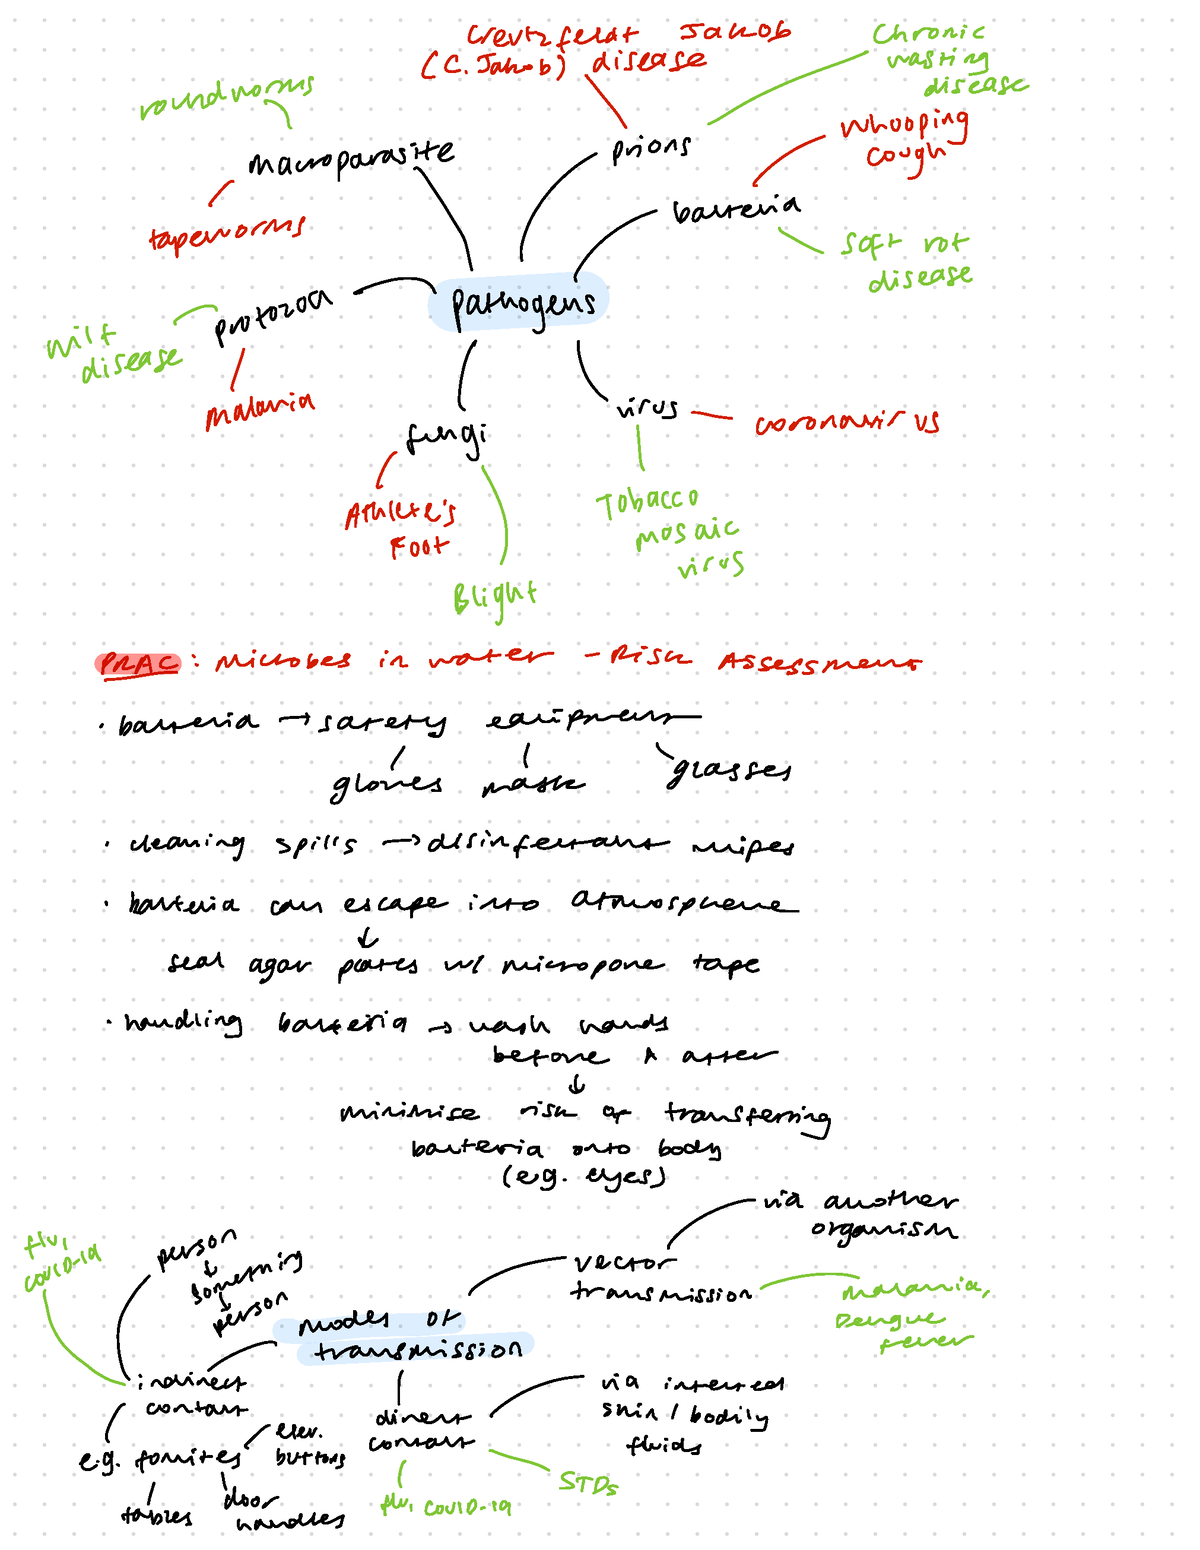 Creutzfeldt Jakob
(C. Jakob) disease
Chronic
wasting
disease
roundworms
macroparasite
prions
Whooping
cough
tapeworms
bacteria
soft rot
disease
pathogens
protozoa
wilt
disease
malaria
virus
coronavirus
fungi
Athlete's
Foot
Tobacco
mosaic
virus
Blight
PRAC: Microbes in water - Risk Assessment
· bacteria → safety equipment
gloves mask glasses
· cleaning spills → disinfectant wipes
· bacteria can escape into atmosphere
↓
seal agar plates w/ micropore tape
· handling bacteria → wash hands
before & after
↓
minimise risk of transferring
bacteria onto body
(e.g. eyes)
via another
organism
vector
transmission
malaria,
Dengue
fever
flu,
COVID-19
person
↓
something
↓
person
modes of
transmission
indirect
contact
e.g. fomites
elev.
buttons
tables
door
handles
direct
contact
via infected
skin / bodily
fluids
STDs
flu, COVID-19